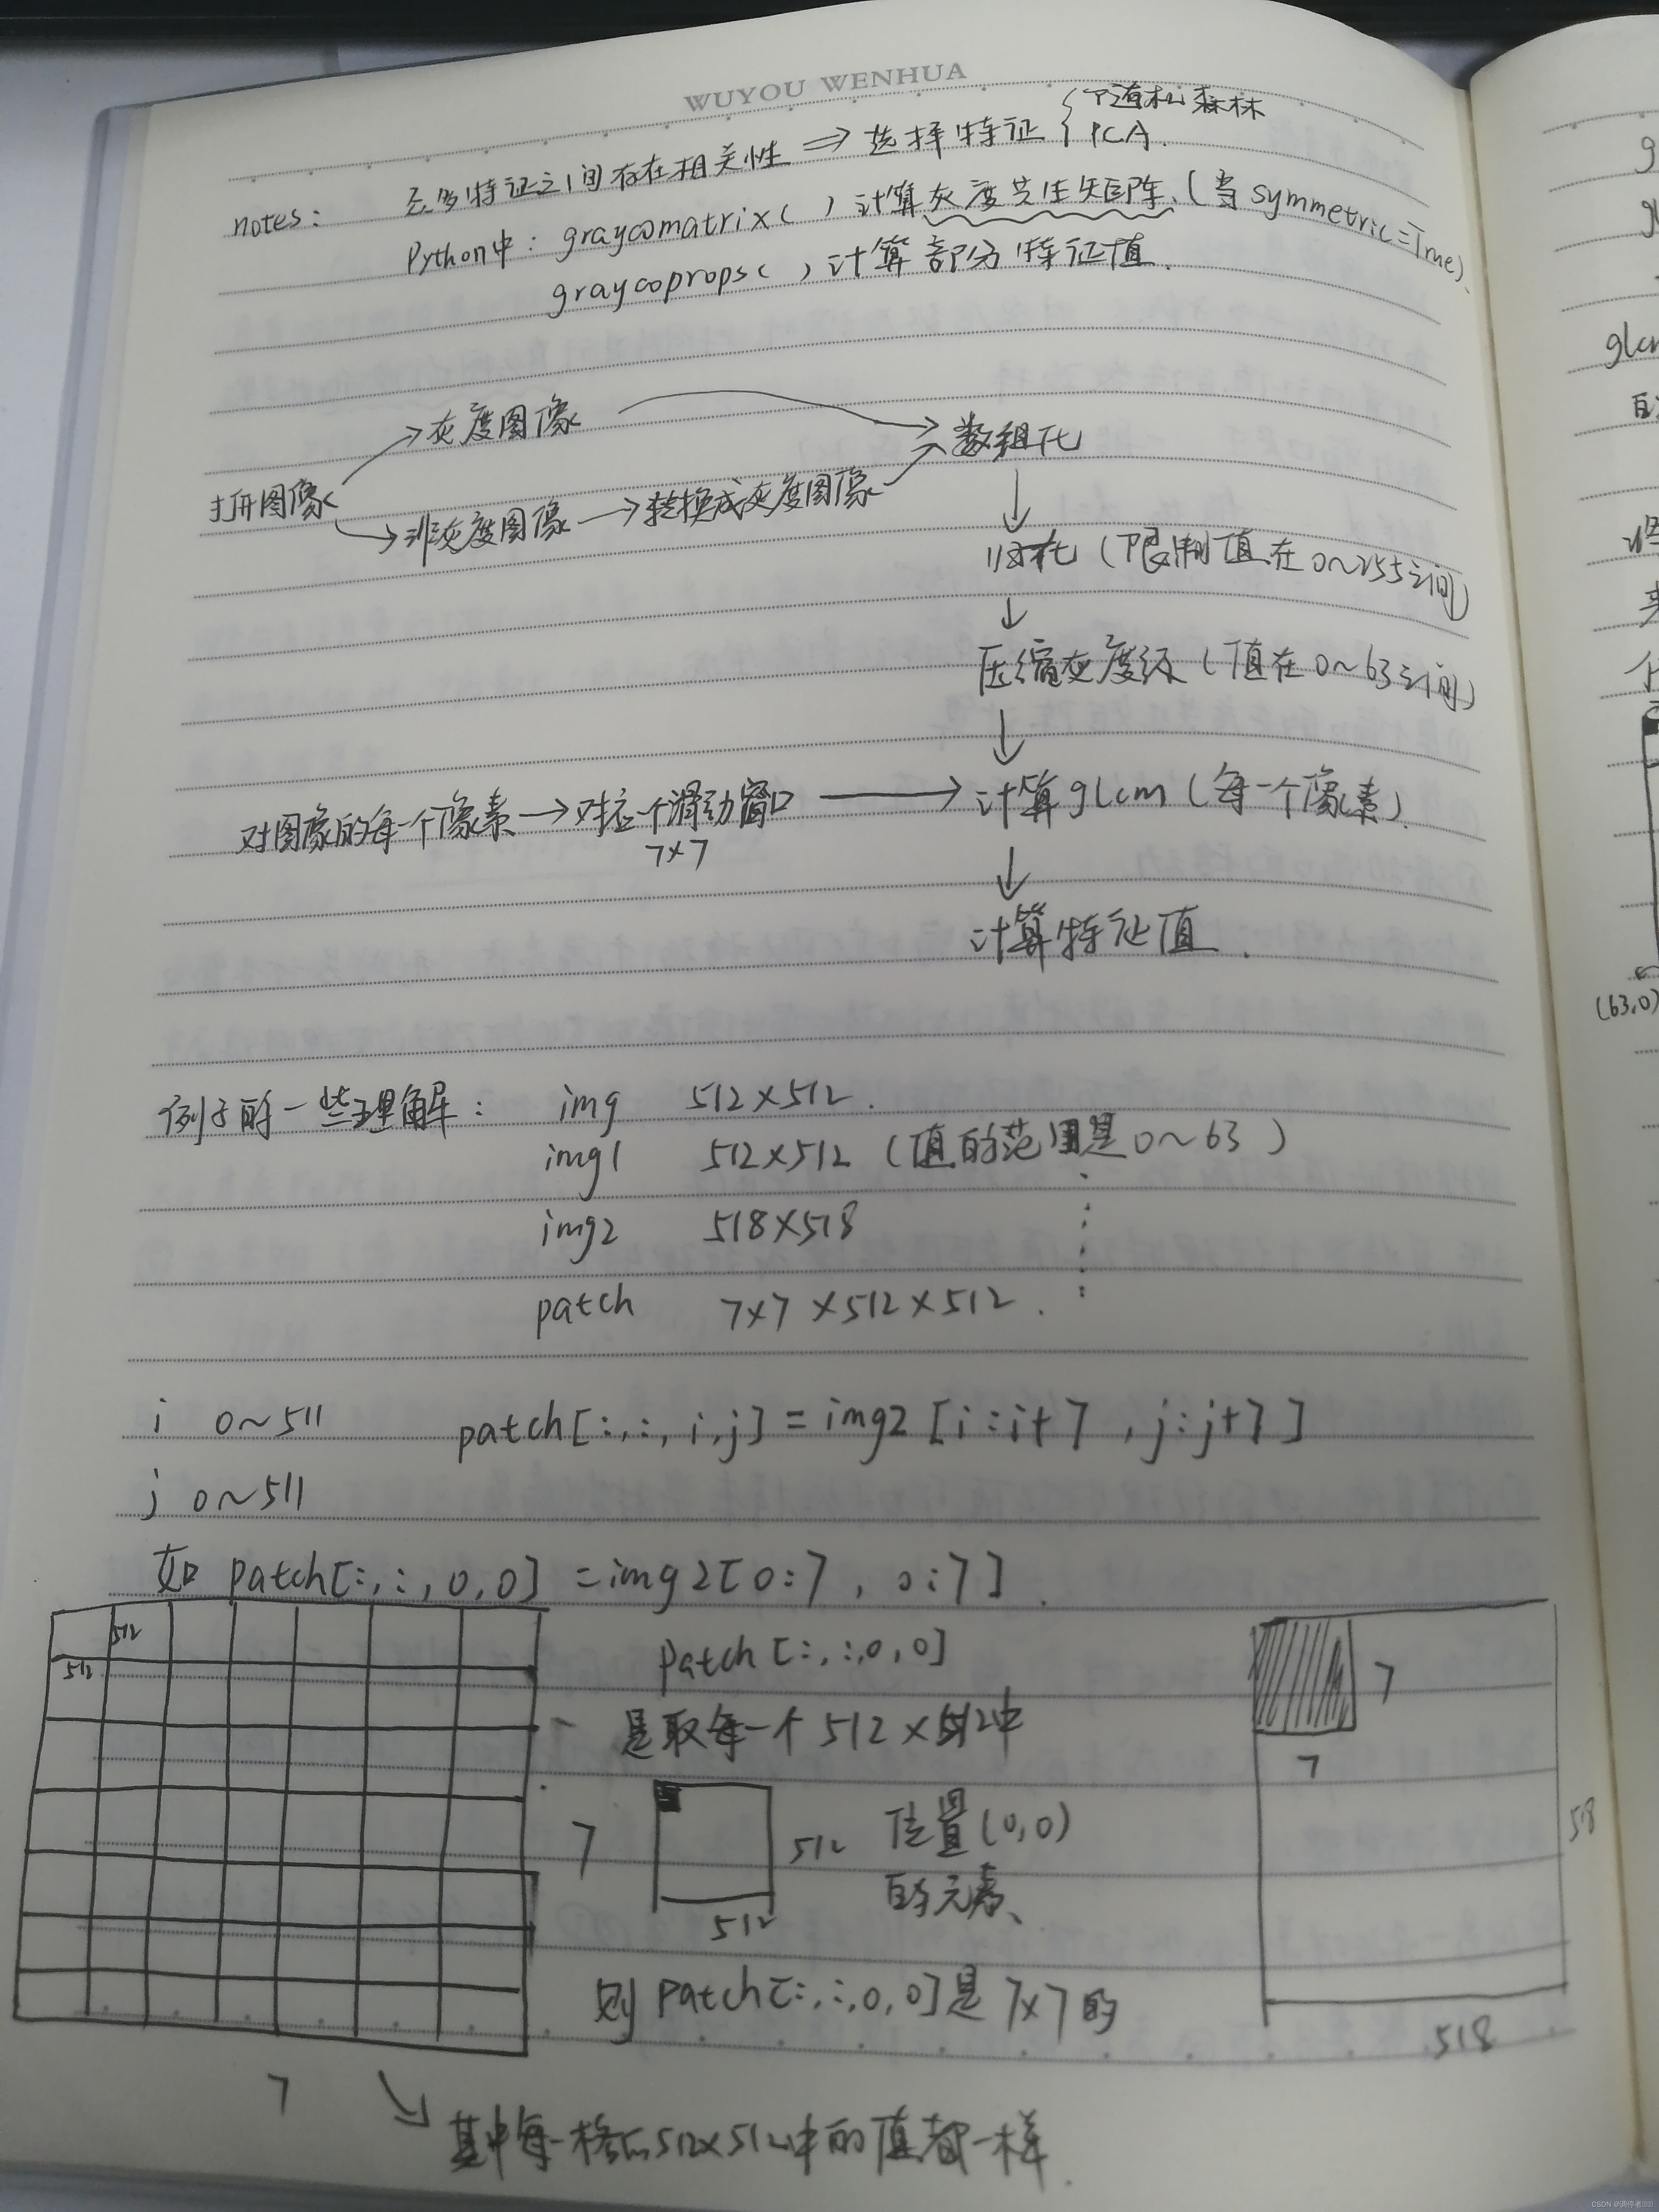 WUYOU WENHUA
notes: 多特征之间存在相关性 ⇒ 选择特征 { 随机森林
PCA.
Python中: graycomatrix( ) 计算灰度共生矩阵.(当symmetric=True).
graycoprops( ) 计算部分特征值.
→灰度图像 → 数组化
打开图像 →非灰度图像→转换成灰度图像
↓
归一化 (限制值在0~255之间)
↓
压缩灰度级 (值在0~63之间)
↓
对图像的每一个像素→对应一个滑动窗口 → 计算glcm (每一个像素).
7×7
↓
计算特征值.
例子的一些理解: img 512×512.
img1 512×512 (值的范围是0~63)
img2 518×518
patch 7×7×512×512.
i 0~511 patch[:,:,i,j]=img2[i:i+7,j:j+7]
j 0~511
如 patch[:,:,0,0]=img2[0:7,0:7].
512
512
patch[:,:,0,0]
7
是取每一个512×512中
7
7
512 位置(0,0)
518
的元素、
512
则patch[:,:,0,0]是7×7的
518
7
其中每一格的512×512中的值都一样.
g
glcm
(63,0)